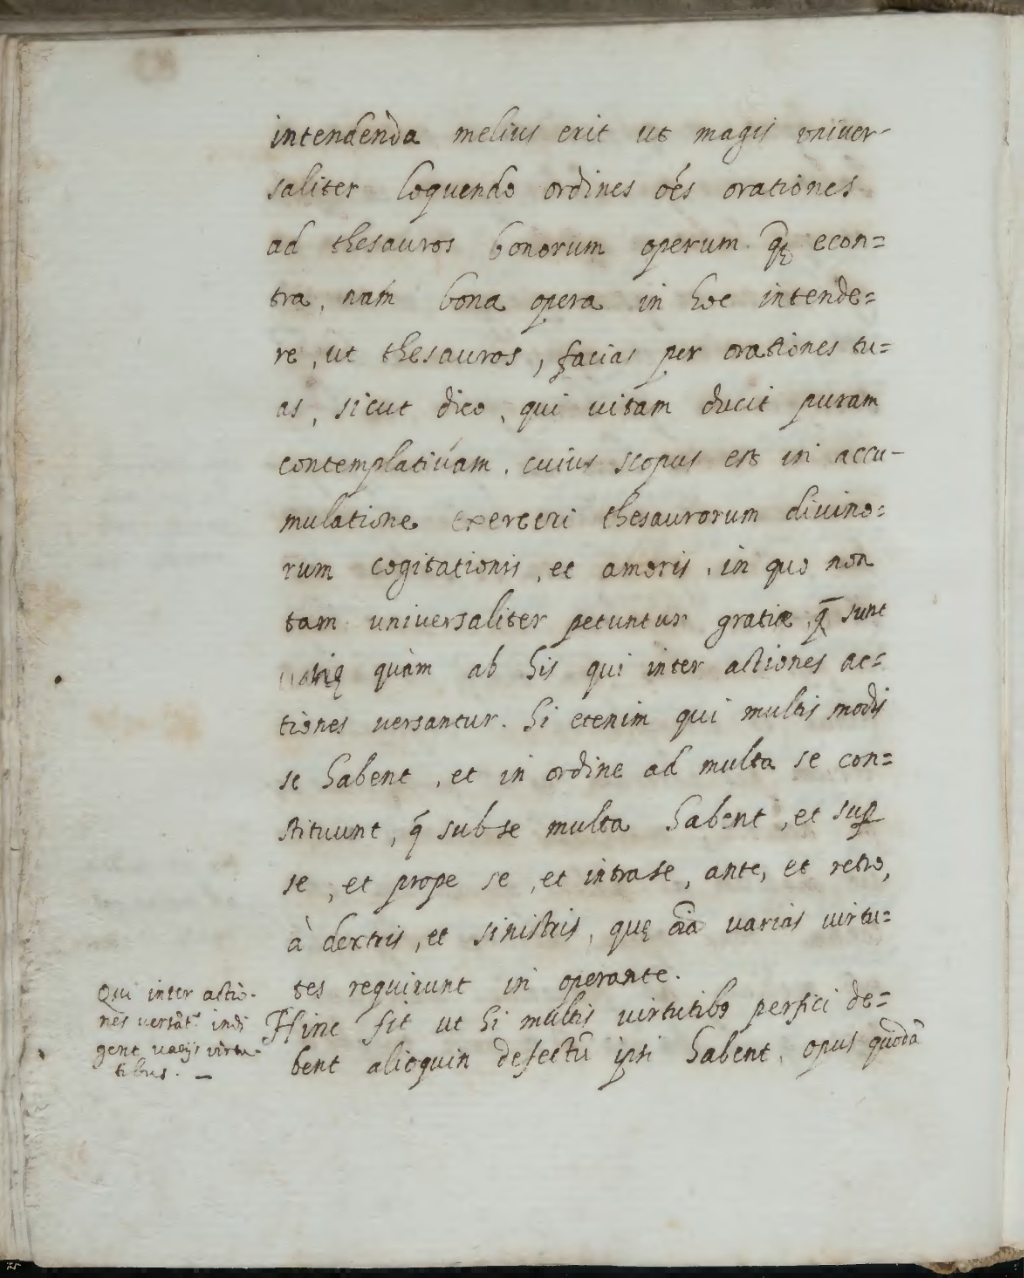 intendenda melius erit ut magis vniuer-
saliter loquendo ordines oēs orationes
ad thesauros bonorum operum q̃ econ=
tra, nam bona opera in hoc intende=
re, ut thesauros, facias per orationes tu=
as, sicut dico, qui uitam ducit puram
contemplatiuam. cuius scopus est in accu-
mulatione exerceri thesaurorum diuino=
rum cogitationis, et amoris. in quo non
tam uniuersaliter petuntur gratiæ, q̄ sunt
quàm ab his qui inter actiones ac=
tiones uersantur. hi etenim qui multis modis
se habent, et in ordine ad multa se con=
stituunt, q̄ sub se multa habent, et sup̱
se, et prope se, et intra se, ante, et retro,
à dextris, et sinistris, quę oīa varias uirtu=
tes requirunt in operante.
Qui inter actio-
nes uersāt indi
gent varijs virtu-
tibus. –
Hinc fit ut hi multis uirtutibꝰ perfici de=
bent alioquin defectū ipsi habent, opus quodā